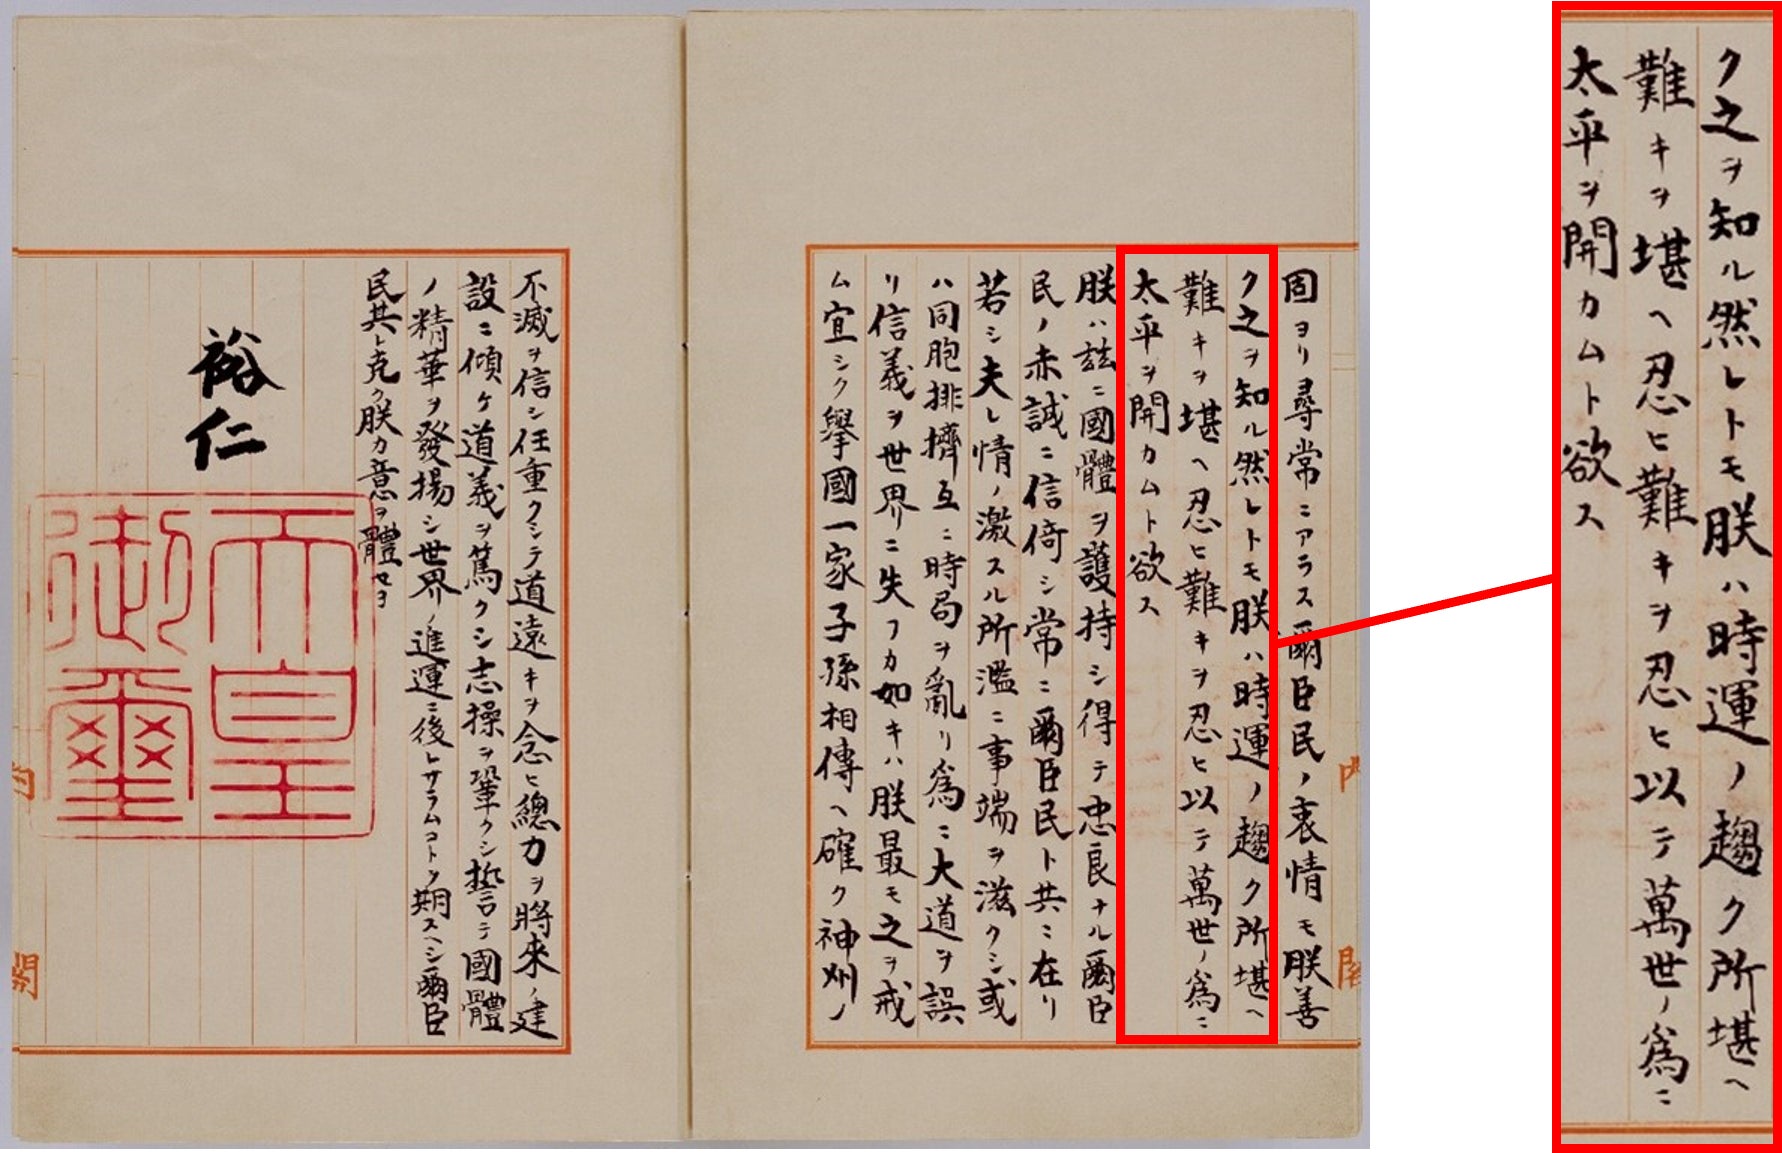 固ヨリ尋常ニアラス爾臣民ノ衷情モ朕善
ク之ヲ知ル然レトモ朕ハ時運ノ趨ク所堪ヘ
難キヲ堪ヘ忍ヒ難キヲ忍ヒ以テ萬世ノ爲ニ
太平ヲ開カムト欲ス
朕ハ茲ニ國體ヲ護持シ得テ忠良ナル爾臣
民ノ赤誠ニ信倚シ常ニ爾臣民ト共ニ在リ
若シ夫レ情ノ激スル所濫ニ事端ヲ滋クシ或
ハ同胞排擠互ニ時局ヲ亂リ爲ニ大道ヲ誤
リ信義ヲ世界ニ失フカ如キハ朕最モ之ヲ戒
ム宜シク擧國一家子孫相傳ヘ確ク神州ノ
不滅ヲ信シ任重クシテ道遠キヲ念ヒ總力ヲ將來ノ建
設ニ傾ケ道義ヲ篤クシ志操ヲ鞏クシ誓テ國體
ノ精華ヲ發揚シ世界ノ進運ニ後レサラムコトヲ期スヘシ爾臣
民其レ克ク朕カ意ヲ體セヨ
裕仁
天皇
御璽
内閣
ク之ヲ知ル然レトモ朕ハ時運ノ趨ク所堪ヘ
難キヲ堪ヘ忍ヒ難キヲ忍ヒ以テ萬世ノ爲ニ
太平ヲ開カムト欲ス